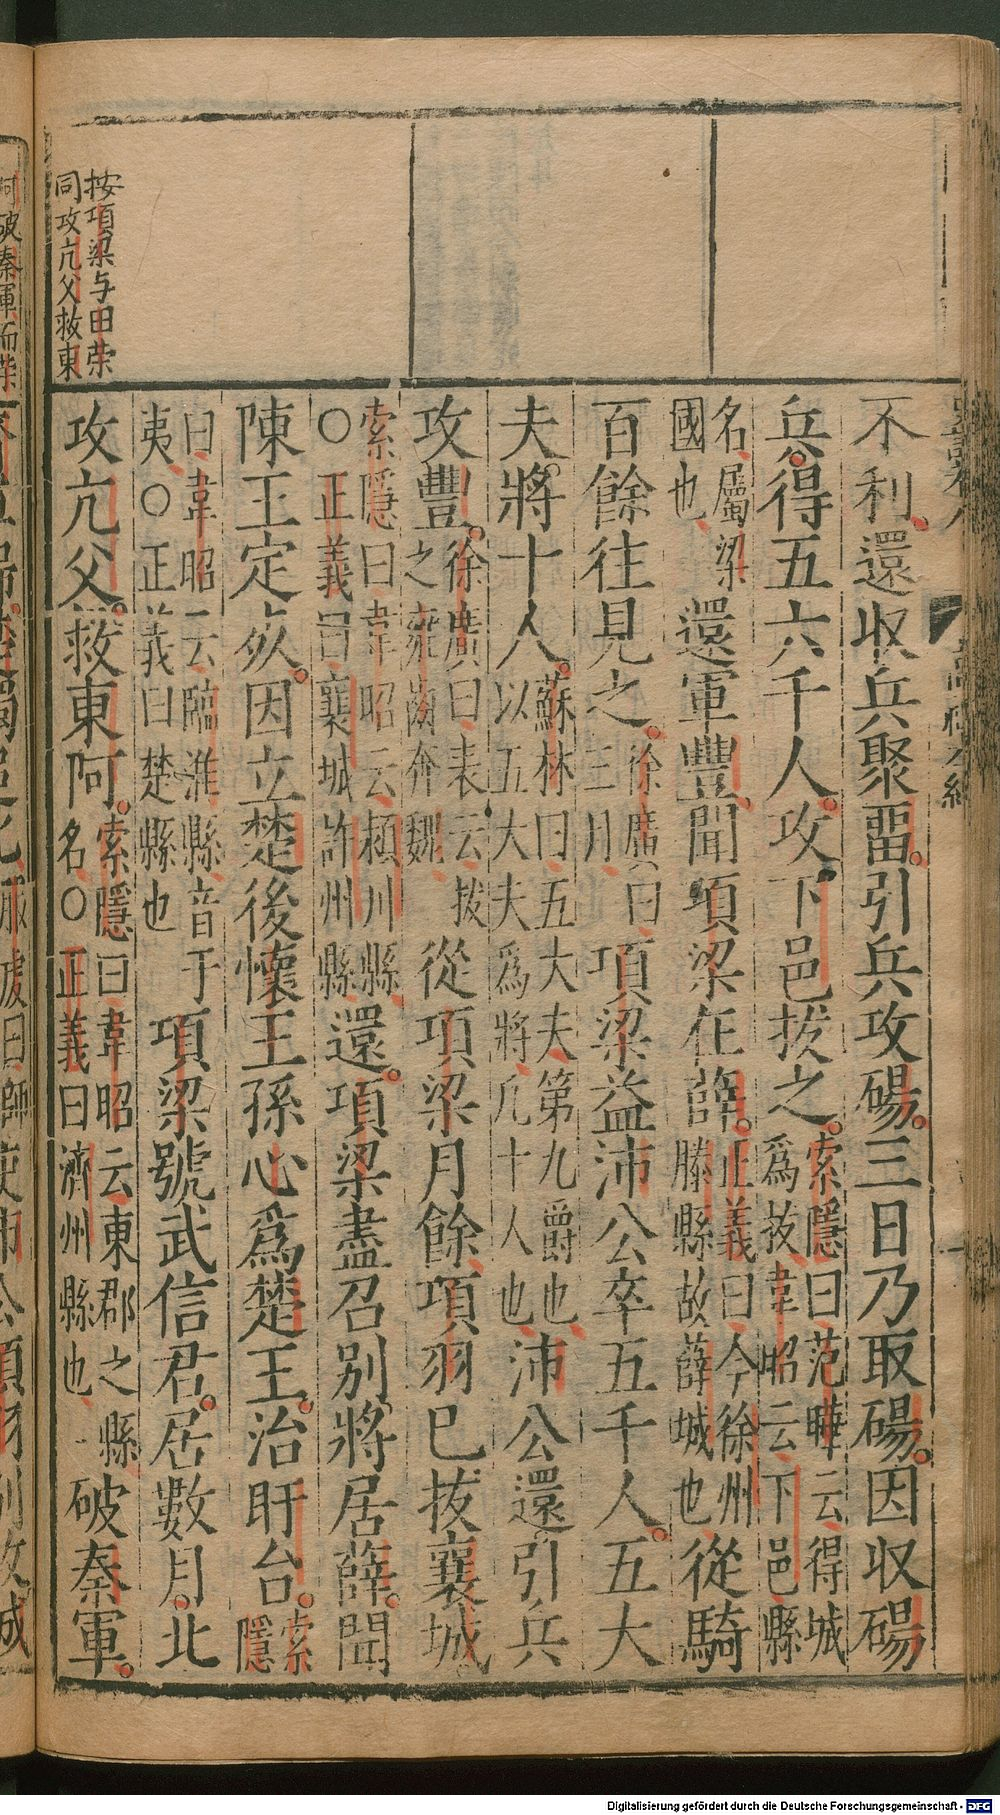 不利還收兵聚畱引兵攻碭三日乃取碭因収碭
兵得五六千人攻下邑拔之索隱曰范曄云得城爲拔韋昭云下邑縣
名屬梁國也還軍豐聞項梁在薛正義曰今徐州滕縣故薛城也從騎
百餘往見之徐廣曰三月項梁益沛公卒五千人五大
夫將十人蘇林曰五大夫第九爵也以五大夫爲將凡十人也沛公還引兵
攻豐徐廣曰表云拔之雍齒奔魏從項梁月餘項羽已拔襄城
索隱曰韋昭云潁川縣○正義曰襄城許州縣還項梁盡召別將居薛聞
陳王定死因立楚後懷王孫心爲楚王治盱台索隱
曰韋昭云臨淮縣音于夷○正義曰楚縣也項梁號武信君居數月北
攻亢父救東阿索隱曰韋昭云東郡之縣名○正義曰濟州縣也破秦軍
按項梁与田荣
同攻亢父救東
Digitalisierung gefördert durch die Deutsche Forschungsgemeinschaft - DFG